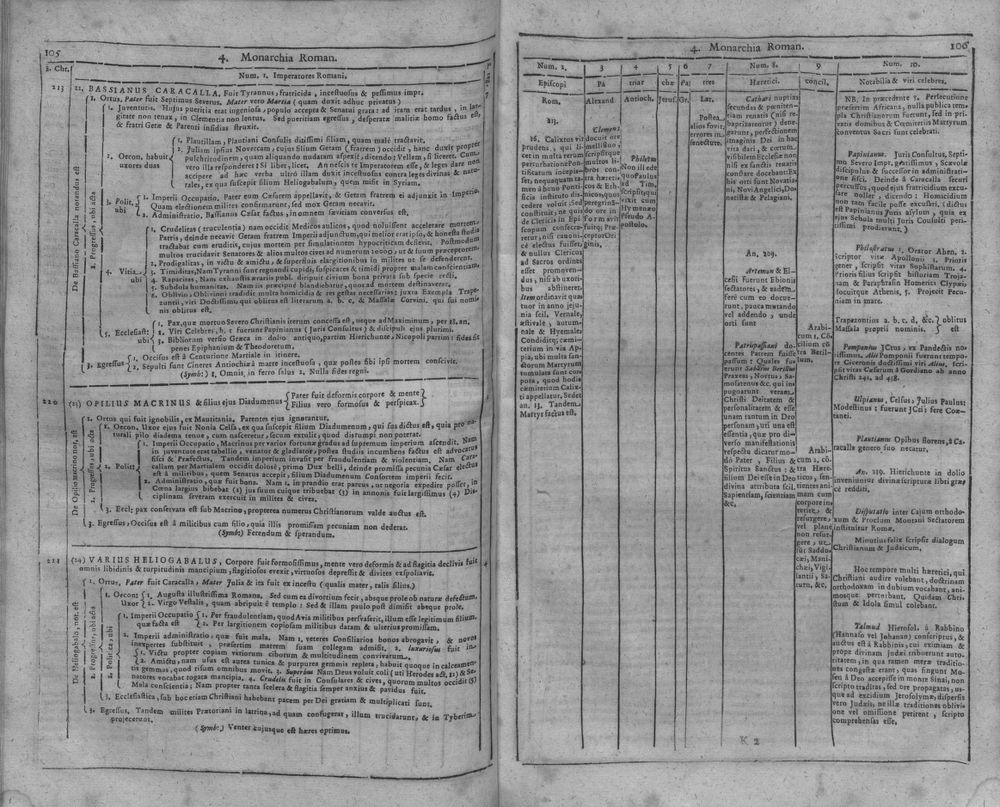 105
4. Monarchia Roman.
â. Chr.
Num. 1. Imperatores Romani.
213
22. BASSIANUS CARACALLA, Fuit Tyrannus, fratricida, incestuosus & pessimus impr.
1. Ortus, Pater fuit Septimus Severus. Mater vero Martia (quam duxit adhuc privatus)
1. Juventutis, Hujus pueritia erat ingeniosa, populo accepta & Senatui grata: ad iram erat tardus, in largitate
non tenax, in Clementia non lentus. Sed pueritiam egressus, desperatæ malitiæ homo factus est,
& fratri Getæ & Parenti insidias struxit.
2. Oecon. habuit uxores duas
1. Plautillam, Plautiani Consulis ditissimi filiam, quam malè tractavit.
2. Juliam ipsius Novercam, cujus filium Getam (fratrem) occidit, hanc duxit propter
pulchritudinem, quam aliquando nudatam aspexit, dicendo; Vellem, si liceret. Cum
vero illa responderet: Si libet, licet. An nescis te Imperatorem esse, & leges dare non
accipere ad hæc verba ultrò illam duxit incestuosus contra leges divinas & naturales,
ex qua suscepit filium Heliogabalum, quem misit in Syriam.
3. Polit. ubi
1. Imperii Occupatio. Pater eum Cæsarem appellavit, & Getam fratrem ei adjunxit in Imperio.
Quam electionem milites confirmarunt, sed mox Getam necavit.
2. Administratio, Bassianus Cæsar factus, in omnem sævitiam conversus est.
4. Vitia, ubi
1. Crudelitas (truculentia) nam occidit Medicos aulicos, quod noluissent accelerare mortem
Patris, deinde necavit Getam fratrem Imperii adjunctum, qui melior erat ipso, & honesta studia
tractabat cum eruditis, cujus mortem per simulationem hypocriticam deflevit. Postmodum
multos trucidavit Senatores & alios multos cives ad numerum 20000, ut & suum præceptorem.
2. Prodigalitas, in victu & amictu, & superfluis elargitionibus in milites ut se defenderent.
3. Timiditas, Nam Tyranni sunt regnandi cupidi, suspicaces & timidi propter malam conscientiam,
4. Rapacitas, Nam exhaustis ærariis publ. diripuit civium bona privata sub specie recti,
5. Subdola humanitas. Nam iis præcipuè blandiebatur, quos ad mortem destinaverat,
6. Oblivio, Oblivioni tradidit multa homicidia & res gestas necessarias; juxta Exempla Trapezuntii,
viri Doctissimi qui oblitus est literarum a. b. c. & Massalæ Corvini, qui sui nominis
oblitus est.
5. Ecclesiast: ubi
1. Pax, quæ mortuo Severo Christianis iterum concessa est, usque ad Maximinum, per 18. an.
2. Viri Celebres, h. t fuerunt Papinianus (Juris Consultus) & discipuli ejus plurimi.
3. Bibliotam verso Græca in dolio antiquo, partim Hierichunte, Nicopoli partim: fides sit
penes Epiphanium & Theodoretum.
3. Egressus
1. Occisus est à Centurione Martiale in itinere.
2. Sepulti sunt Cineres Antiochiæ à matre incestuosa, quæ postea sibi ipsi mortem conscivit.
(Symb:) 1, Omnis, in ferro salus 2. Nulla fides regni.
De Bassiano Caracalla notandus est
2. Progressus, ubi acta
220
(23) OPILIUS MACRINUS & filius ejus Diadumenus
Pater fuit deformis corpore & mente
Filius vero formosus & perspicax.
1. Ortus qui fuit ignobilis, ex Mauritania. Parentes ejus ignorantur.
1. Oecon. Uxor ejus fuit Nonia Celsa, ex qua suscepit filium Diadumenum, qui sus dictus est, quia pro naturali
pilo diadema tenor, cum nasceretur, secum extulit, quod distumpi non poterat.
2. Polit:
1. Imperii Occupatio, Macrinus per varios fortunæ gradus ad supremum imperium ascendit. Nam
in juventute erat tabellio, venator & gladiator, postea studiis incumbens factus est advocatus
fisci & Præfectus, Tandem imperium invasit per fraudulentiam & violentiam. Nam Caracallam
per Martialem occidit dolosè, primo Dux belli, deinde promissa pecunia Cæsar electus
est à militibus, quem Senatus accepit, filium Diadumenum Consortem imperii fecit.
2. Administratio, quæ fuit bona. Nam 1. in prandio erat parcus, ut negotia expedire posset, in
Cœna largius bibebat (2) jus suum cuique tribuebat (3) in annonis fuit largissimus (4) Disciplinam
severam exercuit in milites & cives.
3. Eccl; pax conservata est sub Macrino, propterea numerus Christianorum valde auctus est.
3. Egressus, Occisus est à militibus cum filio, quia illis promissam pecuniam non dederat.
(Symb:) Ferendum & sperandum.
De Opilio notandus est
2. Progressus, ubi acta
221
(24) VARIUS HELIOGABALUS, Corpore fuit formosissimus, mente vero deformis & ad flagitia declivis fuit
omnis libidinis & turpitudinis mancipium, flagitiosos erexit, virtuosos depressit & divites exspoliavit.
1. Ortus, Pater fuit Caracalla, Mater Julia & ita fuit ex incestu (qualis mater, talis filius.)
1. Oecon: Uxor
1. Augusta illustrissima Romana. Sed cum ea divortium fecit, absque prole ob naturæ defectum.
2. Virgo Vestalis, quam abripuit è templo: Sed & illam paulo post dimisit absque prole.
1. Imperii Occupatio quæ facta est
1. Per fraudulentiam, quod Avia militibus persvaserit, illum esse legitimum filium.
2. Per largitionem copiosam militibus datam & ulterius promissam.
2. Imperii administratio, quæ fuit mala. Nam 1. veteres Consiliarios bonos abrogavit, & novos
inexpertos substituit, præsertim matrem suam collegam admisit, 2. luxuriosus fuit in
1. Victu propter copiam variorum ciborum & multitudinem convivarum,
2. Amictu, nam usus est aurea tunica & purpurea gemmis repleta, habuit quoque in calceamentis
gemmas, quod risum omnibus movit. 3. Superbus Nam Deus voluit coli (uti Herodes act. 12) & Senatores
vocabat togata mancipia, 4. Crudelis fuit in Consulares & cives, quorum multos occidit (5)
Mala conscientia; Nam propter tanta scelera & flagitia semper anxius & pavidus fuit.
3. Ecclesiastica, sub hoc etiam Christiani habebant pacem per Dei gratiam & multiplicati sunt.
3. Egressus, Tandem milites Prætoriani in latrina, ad quam confugerat, illum trucidarunt, & in Tyberim
projecerunt.
(Symb:) Venter cujusque est hæres optimus.
De Heliogabalo, not. est
2. Progressus, ubi acta
2. Politica, ubi
4. Monarchia Roman.
106
Num. 2.
3
4
5
6
7
Num. 8.
9
Num. 10.
Episcopi
Pa
triar
chæ
Pa
tres
Hæretici.
concil.
Notabilia & viri celebres.
Rom.
Alexand.
Antioch.
Jeruf.
Gr.
Lat.
213.
16. Calixtus vir
prudens, qui licet
in multa rerum
perturbatione Pontificatum
incepisset;
nequaquam tamen
à bono Pontificis
instituto discedere
voluit; sed
constituit, ne quis
de Clericis in Episcopum
consecretur,
nisi canonicè
electus fuisset,
& nullus Clericus
ad Sacros ordines
esset promovendus,
nisi ab uxoribus
abstineret.
Item ordinavit quatuor
in anno jejunia
scil. Vernale,
æstivale, autumnale
& Hyemale.
Condiditq; cœmiterium
in via Appia,
ubi multa sanctorum
Martyrum
tumulata sunt corpora,
quod hodie
cœmiterium Calixti
appellatur, Sedet
an. 13. Tandem
Martyr factus est.
Clemens
docuit ore
mellissuo,
scripsitque
multos libros
contra hæreticos
& Ethnicos,
quos
peregrinando
ore informavit,
quapropter
Origines,
Philetus
Non ille de
quo Paulus
ad Tim.
scripsit qui
vixit cum
Hymenæo
Pseudo Apostolo.
Postea
alios fovit
errores in
senecture.
Cathari nuptias
secundas & pœnitentiam
renatis (nisi rebaptizarentur)
denegarunt,
perfectionem
imaginis Dei in hac
vita dari, & cœtum
visibilem Ecclesiæ non
nisi ex sanctis renatis
constare docebant: Ex
his orti sunt Novatiani,
Novi Angelici, Donatistæ
& Pelagiani.
An. 209.
Artemon & Elcesii
fuerunt Ebionis
sectatores, & eadem
ferè cum eo docuerunt,
pauca mutando
vel addendo, unde
orti sunt
Patripassiani docentes
Patrem fuisse
passum: Quales fuerunt
Sabæus Berillus
Praxeas, Noetus, Samosatenus
&c. qui impugnarunt
veram
Christi Deitatem &
personalitatem & esse
unam tantum in Deo
personam, uti una est
essentia, quæ pro diverso
manifestationis
respectu dicatur modò
Pater, Filius &
Spiritus Sanctus: &
filium Dei esse in Deo
divina attributa scil.
Sapientiam, scientiam
&c.
Arabicum
1. Concilium
contra Berillum,
Arabicum
2. contra
Hæreticos,
sentientes
animam cum
corpore interire,
&
resurgere,
vel plane
non resurgere,
ut
sunt Sadducæi,
Manichæi,
Vigilantii,
Saturn,
&c.
NB. In præcedente 5. Persecutione
præsertim Africana, nulla publica templa
Christianorum fuerunt, sed in privatis
domibus & Cœmiteriis Martyrum
conventus Sacri sunt celebrati.
Papinianus. Juris Consultus, Septimo
Severo Impr. gratissimus, Scævolæ
discipulus & successor in administratione
fisci. Deinde à Caracalla securi
percussus, quod ejus fratricidium excusare
nollet, dicendo: Homicidium
non tam facile posse excusari, (dictus
est Papinianus Juris asylum, quia ex
ejus Schola multi Juris Consulti peritissimi
prodierunt.)
Philostratus 1. Orator Ahen. 2.
Scriptor vitæ Apollonii 2. Prioris
gener, scripsit vitas Sophistarum. 4.
Prioris filius scripsit historiam Trojanam
& Paraphrasin Homerici Clypæi,
locuitque Athenis. 5. Projecit Pecuniam
in mare.
Trapezontius a. b. c. d. &c.
Massala proprii nominis.
oblitus est
Pomponius JCtus, ex Pandectis notissimus.
Alii Pomponii fuerunt tempore
Ciceronis doctissimi viri Alius, scripsit
vitas Cæsarum à Gordiano ab anno
Christi 241. ad 458.
Ulpianus, Celsus, Julius Paulus:
Modestinus: fuerunt JCti fere Coætanei.
Plautianus Opibus florens, à Caracalla
genero suo necatur.
An. 219. Hierichunte in dolio
invenitur divina scriptura libri græcè
redditi.
Disputatio inter Cajum orthodoxum
& Proclum Montani Sectatorem
instituitur Romæ.
Minutius felix scripsit dialogum
Christianum & Judaicum.
Hoc tempore multi hæretici, qui
Christiani audire volebant, doctrinam
orthodoxam in dubium vocabant, animosque
perturbant, Quidam Christum
& Idola simul colebant.
Talmud Hierosol. à Rabbino
(Hannaso vel Johanan) conscriptus, &
auctus est à Rabbinis, cui eximiam &
prope divinam Judæi tribuerunt autoritatem,
in qua tamen meræ traditiones
congestæ erant, quas fingunt Mosen
à Deo accepisse in monte Sinai, non
scripto traditas, sed ore propagatas, usque
ad excidium Jerosolymæ, dispersis
vero Judæis, ne illæ traditiones oblivione
vel omissione perirent, scripto
comprehensas esse.
K 2